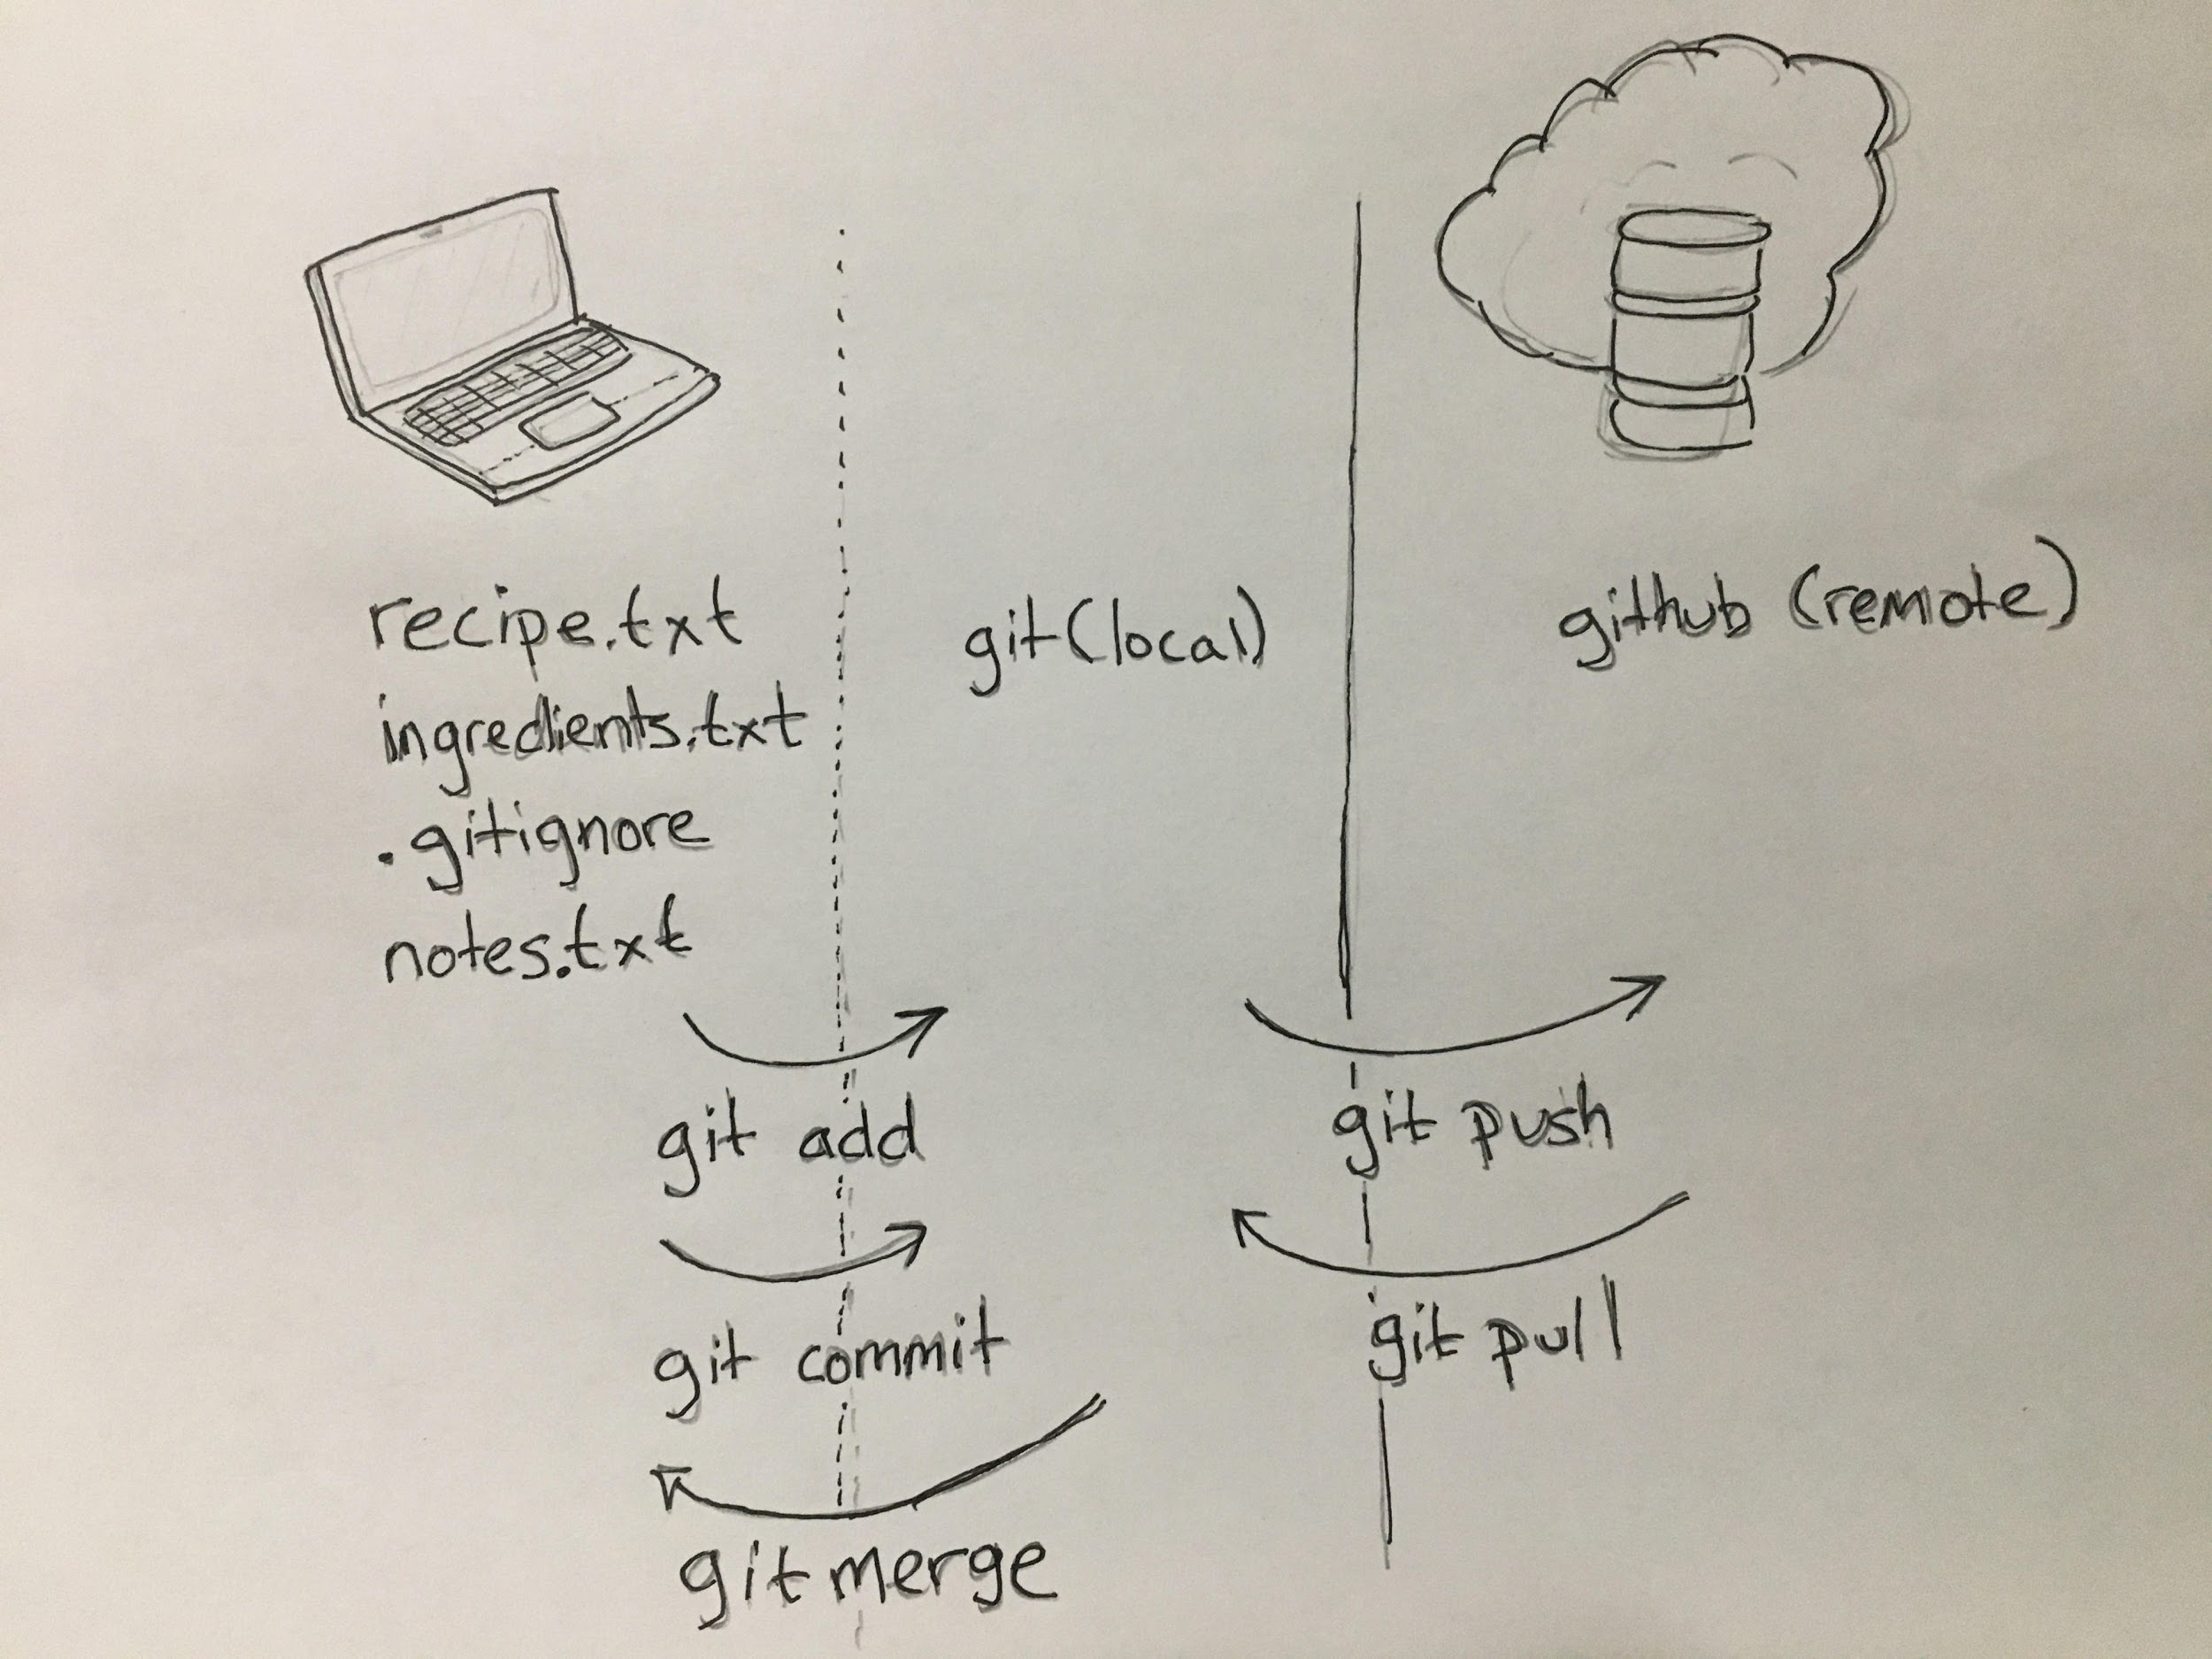 recipe.txt
ingredients.txt
.gitignore
notes.txt
git(local)
github (remote)
git add
git commit
git merge
git push
git pull